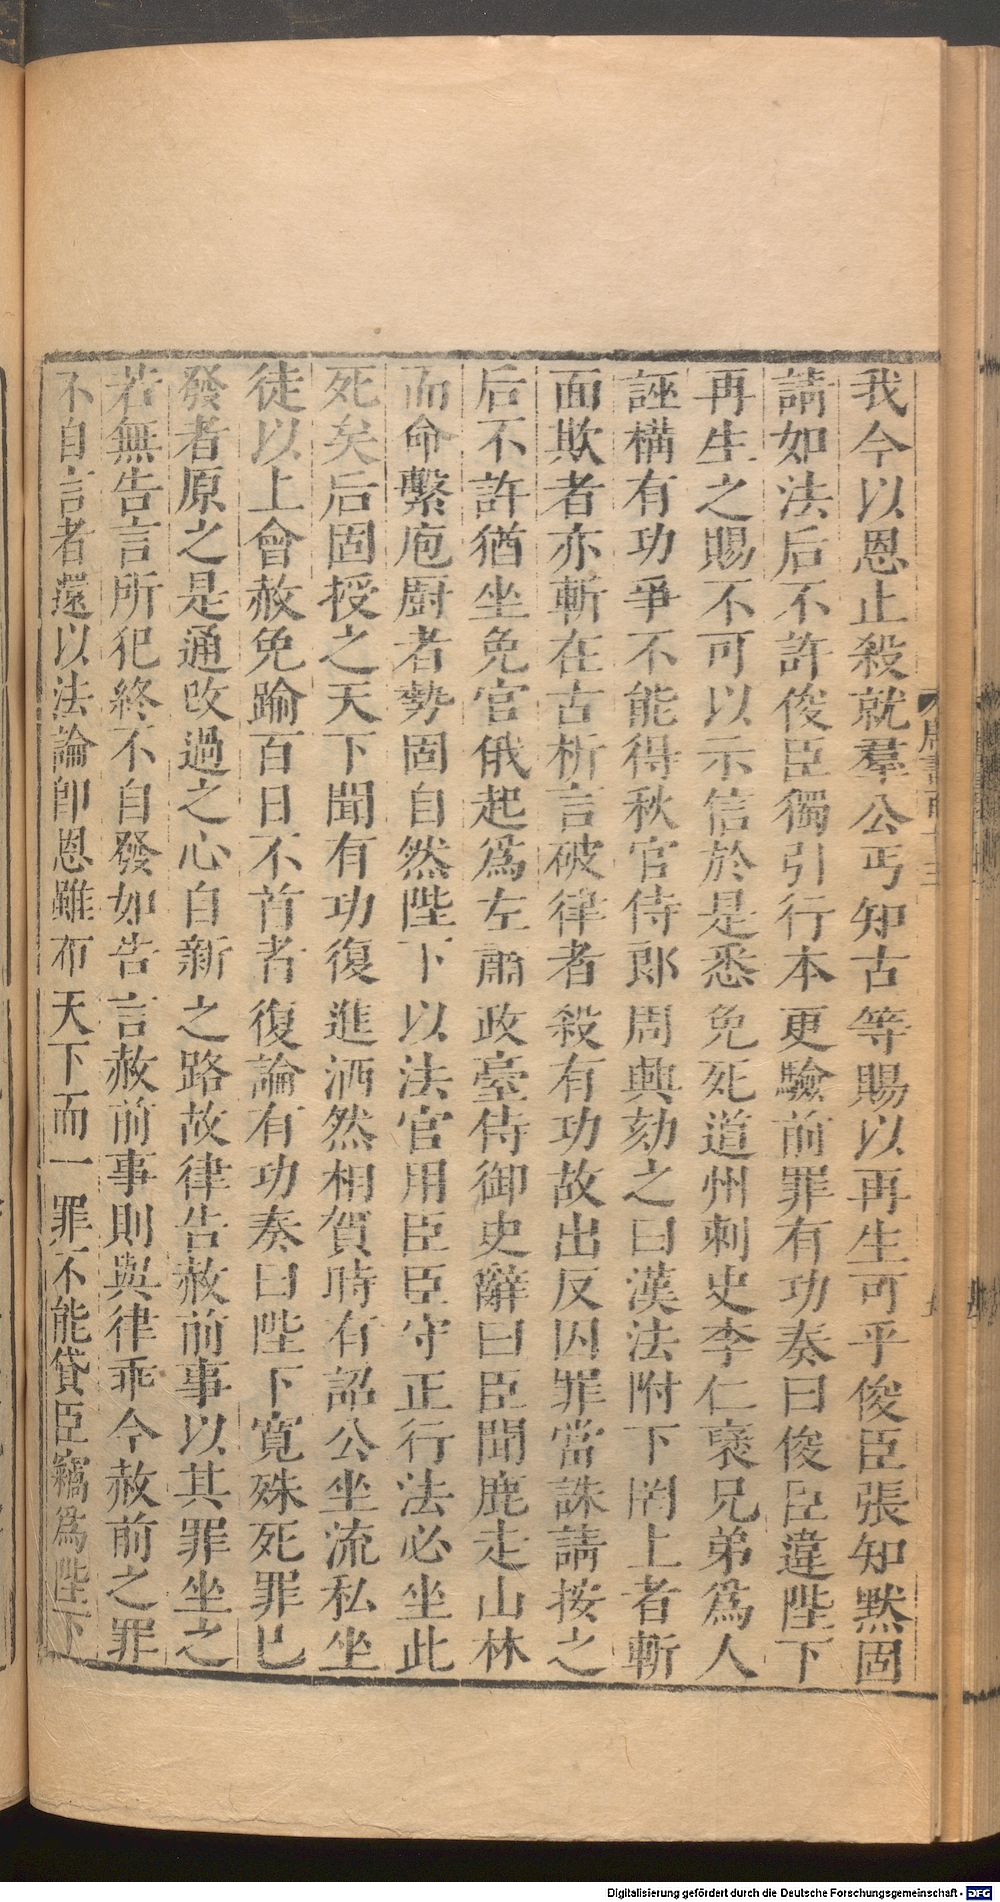 我今以恩止殺就羣公丐知古等賜以再生可乎俊臣張知默固
請如法后不許俊臣獨引行本更驗前罪有功奏曰俊臣違陛下
再生之賜不可以示信於是悉免死道州刺史李仁褒兄弟爲人
誣構有功爭不能得秋官侍郎周興劾之曰漢法附下罔上者斬
面欺者亦斬在古析言破律者殺有功故出反囚罪當誅請按之
后不許猶坐免官俄起爲左肅政臺侍御史辭曰臣聞鹿走山林
而命繫庖廚者勢固自然陛下以法官用臣臣守正行法必坐此
死矣后固授之天下聞有功復進洒然相賀時有詔公坐流私坐
徒以上會赦免踰百日不首者復論有功奏曰陛下寛殊死罪已
發者原之是通改過之心自新之路故律告赦前事以其罪坐之
若無告言所犯終不自發如告言赦前事則與律乖今赦前之罪
不自言者還以法論卽恩雖布天下而一罪不能貸臣竊爲陛下
Digitalisierung gefördert durch die Deutsche Forschungsgemeinschaft - DFG